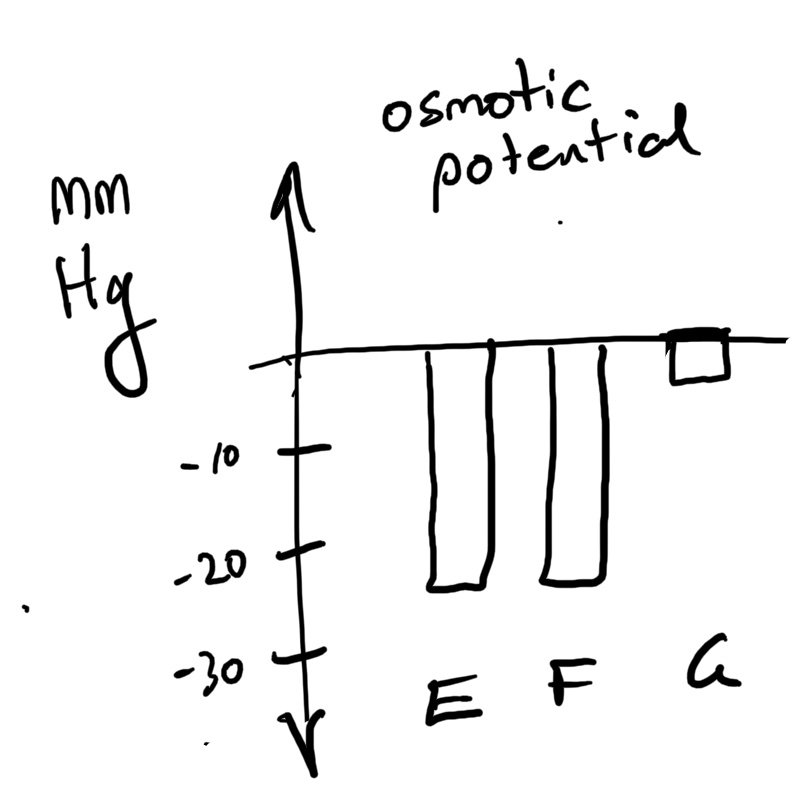 osmotic
potential
mm
Hg
-10
-20
-30
E F G